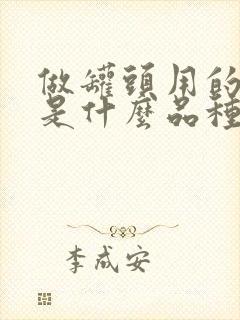 做罐頭用的
是什麼品種
李成安